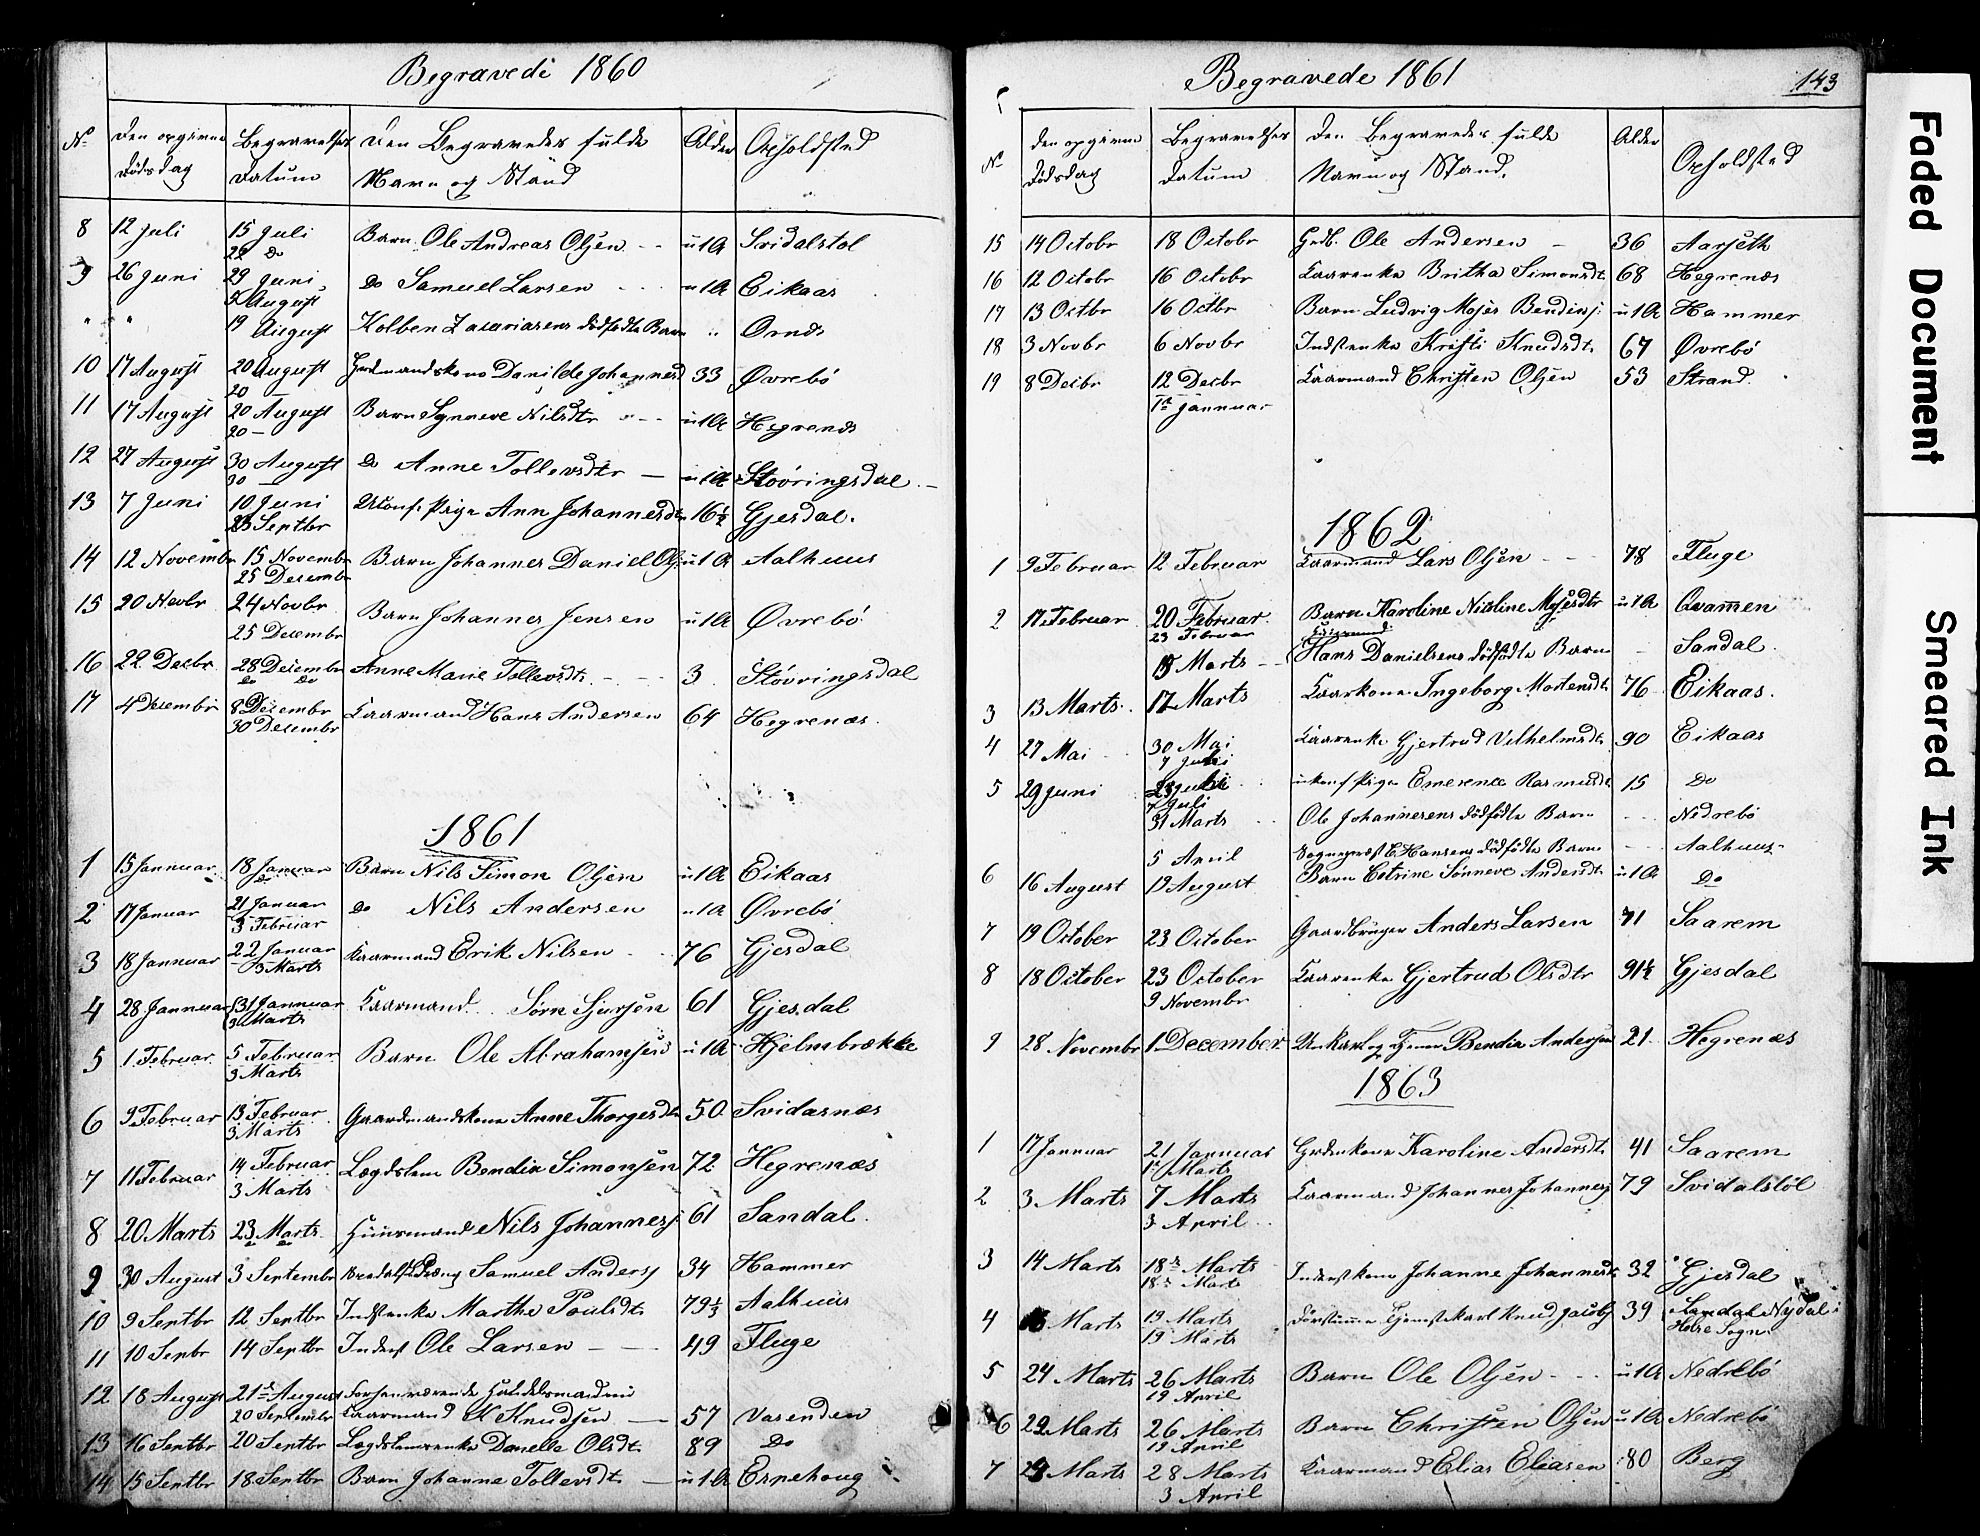 Begravede 1860
No
Den opgivne Dødsdag
Begravelses Datum
Den Begravedes fulde Navn og Stand
Alder
Opholdsted
8 12 Juli 15 Juli Barn Ole Andreas Olsen u 1 A Svidalstøl
22 Do
9 26 Juni 29 Juni Do Samuel Larsen u 1 A Eikaas
August
" " 19 August Kolben Zacariasens dødfødte Barn " Ornes
10 17 August 20 August Grdmandskone Danilde Johannesd 33 Øvrebö
20 —
11 17 August 20 August Barn Synneve Nilsdtr u 1 A Hegrenæs
20 —
12 27 August 30 August Do Anne Tollevsdtr u 1 A Støvringsdal
30 —
13 7 Juni 10 Juni Uconf. Pige Ann Johannesdtr 16½ Gjesdal.
23 Septbr
14 12 Novembr 15 Novembr Barn Johannes Daniel Ols. u 1 A Aalhuus
25 Decembr
15 20 Novbr 24 Novbr Barn Johannes Jensen u 1 A Øvrebö
25 Decembr
16 22 Decbr 28 Decembr Anne Marie Tollevsdtr. 3 Støvringsdal
Do Do
17 4 Decembr 8 Decembr Kaarmand Hans Andersen 64 Hegrenæs.
30 Decembr
1861
1 15 Januar 18 Januar Barn Nils Simon Olsen u 1 A Eikaas
Do
2 17 Januar 21 Januar Do Nils Andersen u 1 A Øvrebö
3 Februar
3 18 Januar 22 Januar Kaarmand Erik Nilsen 76 Gjesdal
3 Marts
4 28 Januar 31 Januar Kaarmand Sörn Sjursen 61 Gjesdal
3 Marts
5 1 Februar 5 Februar Barn Ole Abrahamsen u 1 A Hjelmbrække
3 Marts
6 9 Februar 13 Februar Gaardmandskone Anne Thorgersdtr 50 Svidasnæs
3 Marts
7 11 Februar 14 Februar Lægdslem Bendix Simonsen 72 Hegrenæs
3 Marts
8 20 Marts 23 Marts Huusmand Nils Johannes. 61 Sandal.
Do Do
9 30 August 3 Septembr Samuel Anders. 34 Hammer
10 9 Septbr 12 Septbr Indstenke Marthe Poulsdtr 79⅓ Aalhuus
11 10 Sepbr 14 Septbr Inderst Ole Larsen 49 Fluge
12 18 August 21de August Forhenværende Handelsmand nu
20 Septembr Kaarmand K Knudsen 57 Vasenden
13 16 Septbr 20 Septbr Lægdslemsenke Danelle Olsdtr 89 Do
14 15 Septbr 18 Septbr Barn Johanne Tollevsdtr u 1 A Espehoug
Begravede 1861
143
No
Den opgivne Dødsdag
Begravelses Datum
Den Begravedes fulde Navn og Stand.
Alder
Opholdsted
15 14 Octobr 18 Octobr Grdb. Ole Andersen 36 Aarseth
16 12 Octobr 16 Octobr Kaarenke Britha Simonsdtr 68 Hegrenæs
17 13 Octbr 16 Octbr Barn Ludvig Moses Bendixs. u 1 A Hammer
18 3 Novbr 6 Novbr Indstenke Kristi Knudsdtr 67 Øvrebö
19 8 Decbr 12 Decbr Kaarmand Christen Olsen 53 Strand.
1te Januar
1862
1 9 Februar 12 Februar Kaarmand Lars Olsen 78 Fluge
2 17 Februar 20 Februar Barn Karoline Nicoline Mosesdtr u 1 A Qvamen
23 Februar
18 Marts Huusmand Hans Danielsens dødfødte Barn Sandal.
3 13 Marts 17 Marts Kaarkone Ingeborg Mortensdtr 76 Eikaas.
4 27 Mai 30 Mai Kaarenke Gjertrud Vilhelmsdtr 90 Eikaas
5 29 Juni Juli ukonf Pige Emerence Rasmusdtr 15 Do
7 Juli
31 Marts Ole Johannesens dødfødte Barn Nedrebö
5 April Sogneprest E Hansens dødfødte Barn Aalhuus
6 16 August 19 August Barn Catrine Sønneve Andersdtr u 1 A Do
7 19 October 23 October Gaardbruger Anders Larsen 71 Saarem
8 18 October 23 October Kaarenke Gjertrud Olsdtr 91½ Gjesdal
9 Novembr
9 28 Novembr 1 December Bendix Andersen 21 Hegrenæs
1863
1 17 Januar 21 Januar Grdmkone Karoline Andersdtr 41 Saarem
1te Marts
2 3 Marts 7 Marts Kaarmand Johannes Johannes. 79 Svidalstöl
3 April
3 14 Marts 18de Marts Inderstkone Johanne Johannesdtr 32 Gjesdal
18de Marts
4 Marts 19 Marts døvstumme Tjenestekarl Knud Jacobs. 39 Sandal Nydal i
19 Marts Holse Sogn
5 24 Marts 26 Marts Barn Ole Olsen u 1 A Nedrebö
19 April
6 22 Marts 26 Marts Barn Christen Olsen u 1 A Nedrebö
19 April
7 Marts 28 Marts Kaarmand Elias Eliasen 80 Berg
3 April
Faded Document
Smeared Ink